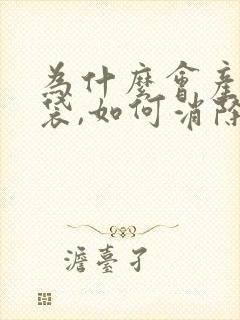 為什麼會產
袋,如何消除
澹臺孑